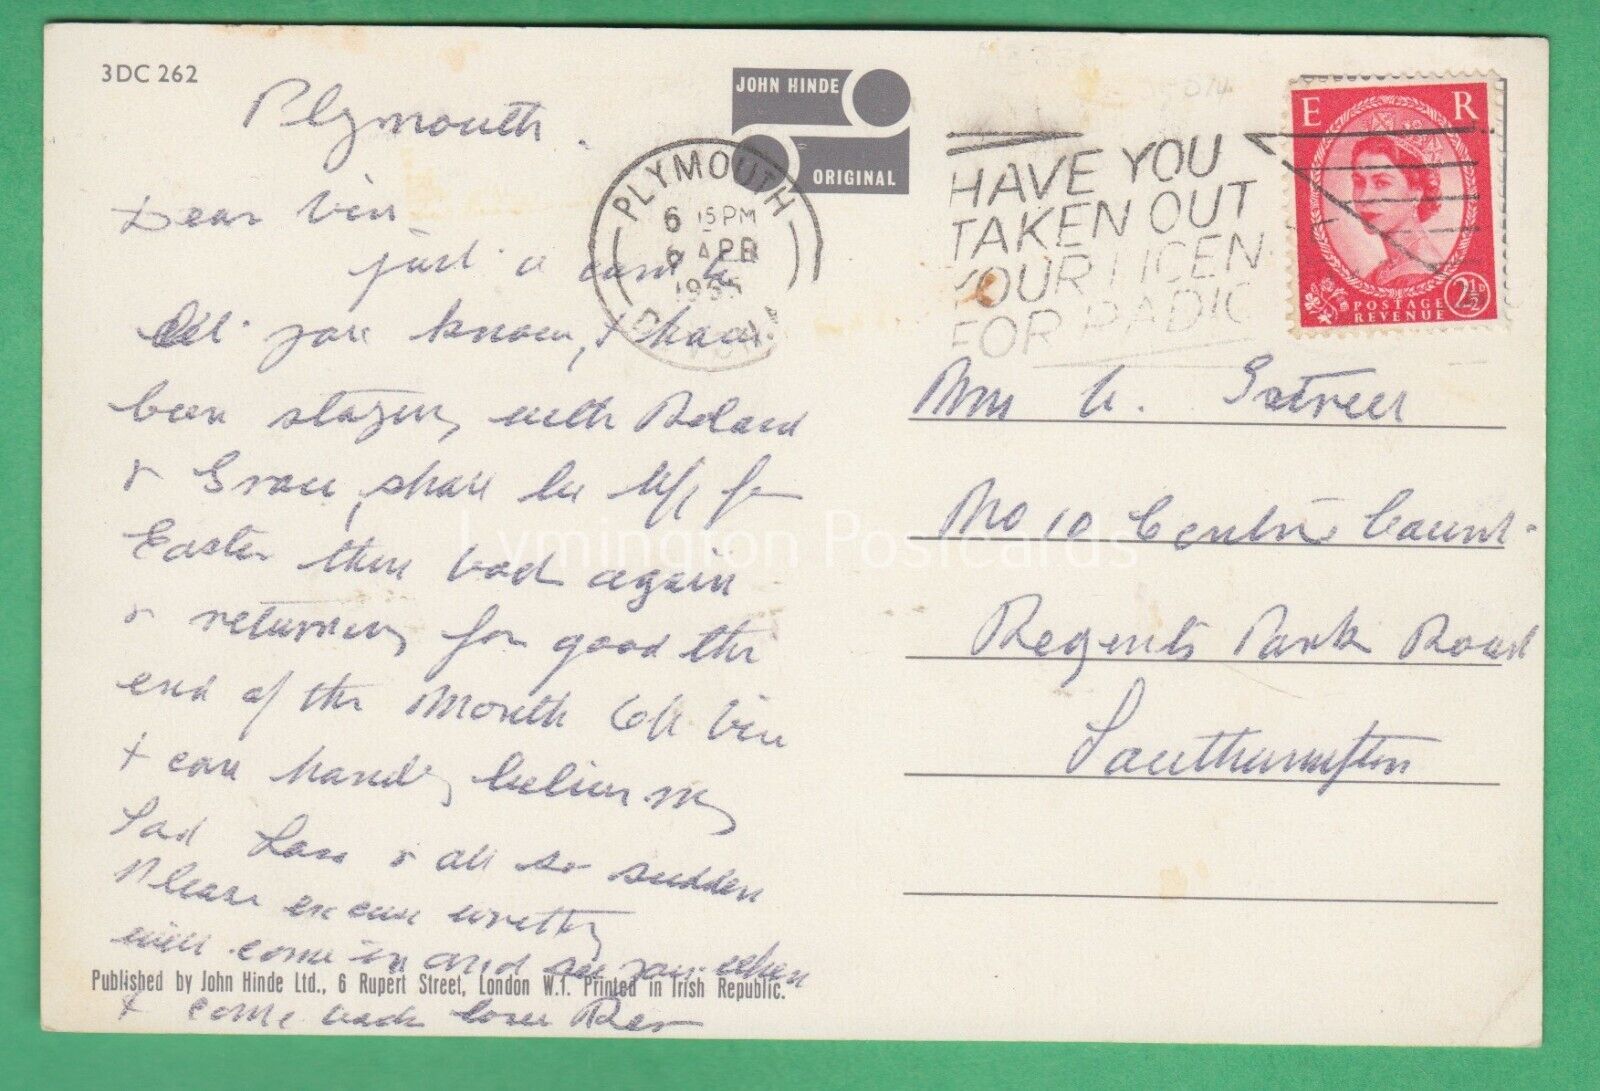 3DC 262
JOHN HINDE
ORIGINAL
PLYMOUTH
6 15PM
6 APR
1965
DEVON
HAVE YOU
TAKEN OUT
YOUR LICEN
FOR RADIO
E R
POSTAGE 2½D
REVENUE
Plymouth.
Dear Vin
just a card to
let you know, I have
been staying with Roland
& Grace, shall be up for
Easter then back again
& returning for good the
end of the Month Oh Vin
I can hardly believe my
Sad Loss & all so sudden
Please excuse writing
will come in and see you when
I come back love
No 10 Centre Court
Regents Park Road
Southampton
Published by John Hinde Ltd., 6 Rupert Street, London W.1. Printed in Irish Republic.
Lymington Postcards